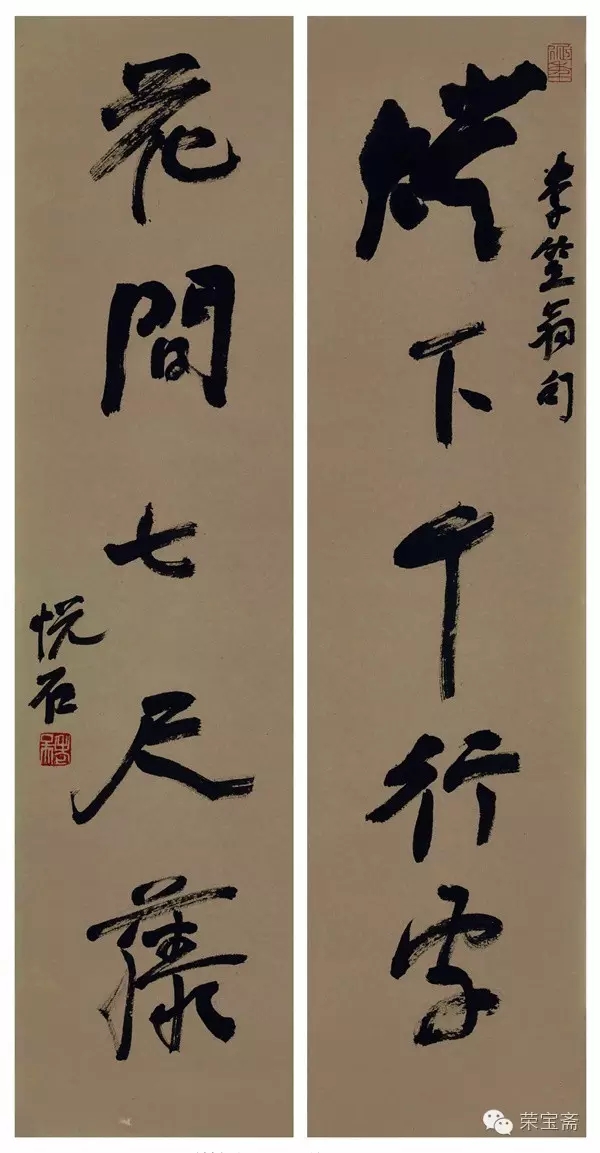 李笠翁句
燈下千行字
花間七尺藤
悦石
荣宝斋